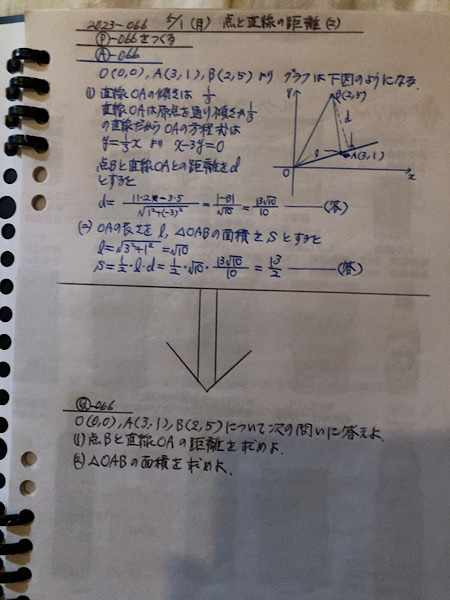 2023-066 5/1(月) 点と直線の距離(2)
Ⓟ-066をつくる
Ⓐ-066
O(0,0), A(3,1), B(2,5)より グラフは下図のようになる.
(1) 直線OAの傾きは 1/3
直線OAは原点を通り傾きが 1/3
の直線だから OAの方程式は
y=1/3x より x-3y=0
点Bと直線OAとの距離をd
とすると
d= |1·2-3·5|/√(1²+(-3)²) = |-13|/√10 = 13√10/10 ——(答)
y
B(2,5)
d
A(3,1)
O
x
(2) OAの長さをl, △OABの面積をSとすると
l=√(3²+1²) =√10
S=1/2·l·d=1/2·√10·13√10/10 = 13/2 ——(答)
Ⓠ-066
O(0,0), A(3,1), B(2,5)について次の問いに答えよ.
(1) 点Bと直線OAの距離を求めよ.
(2) △OABの面積を求めよ.